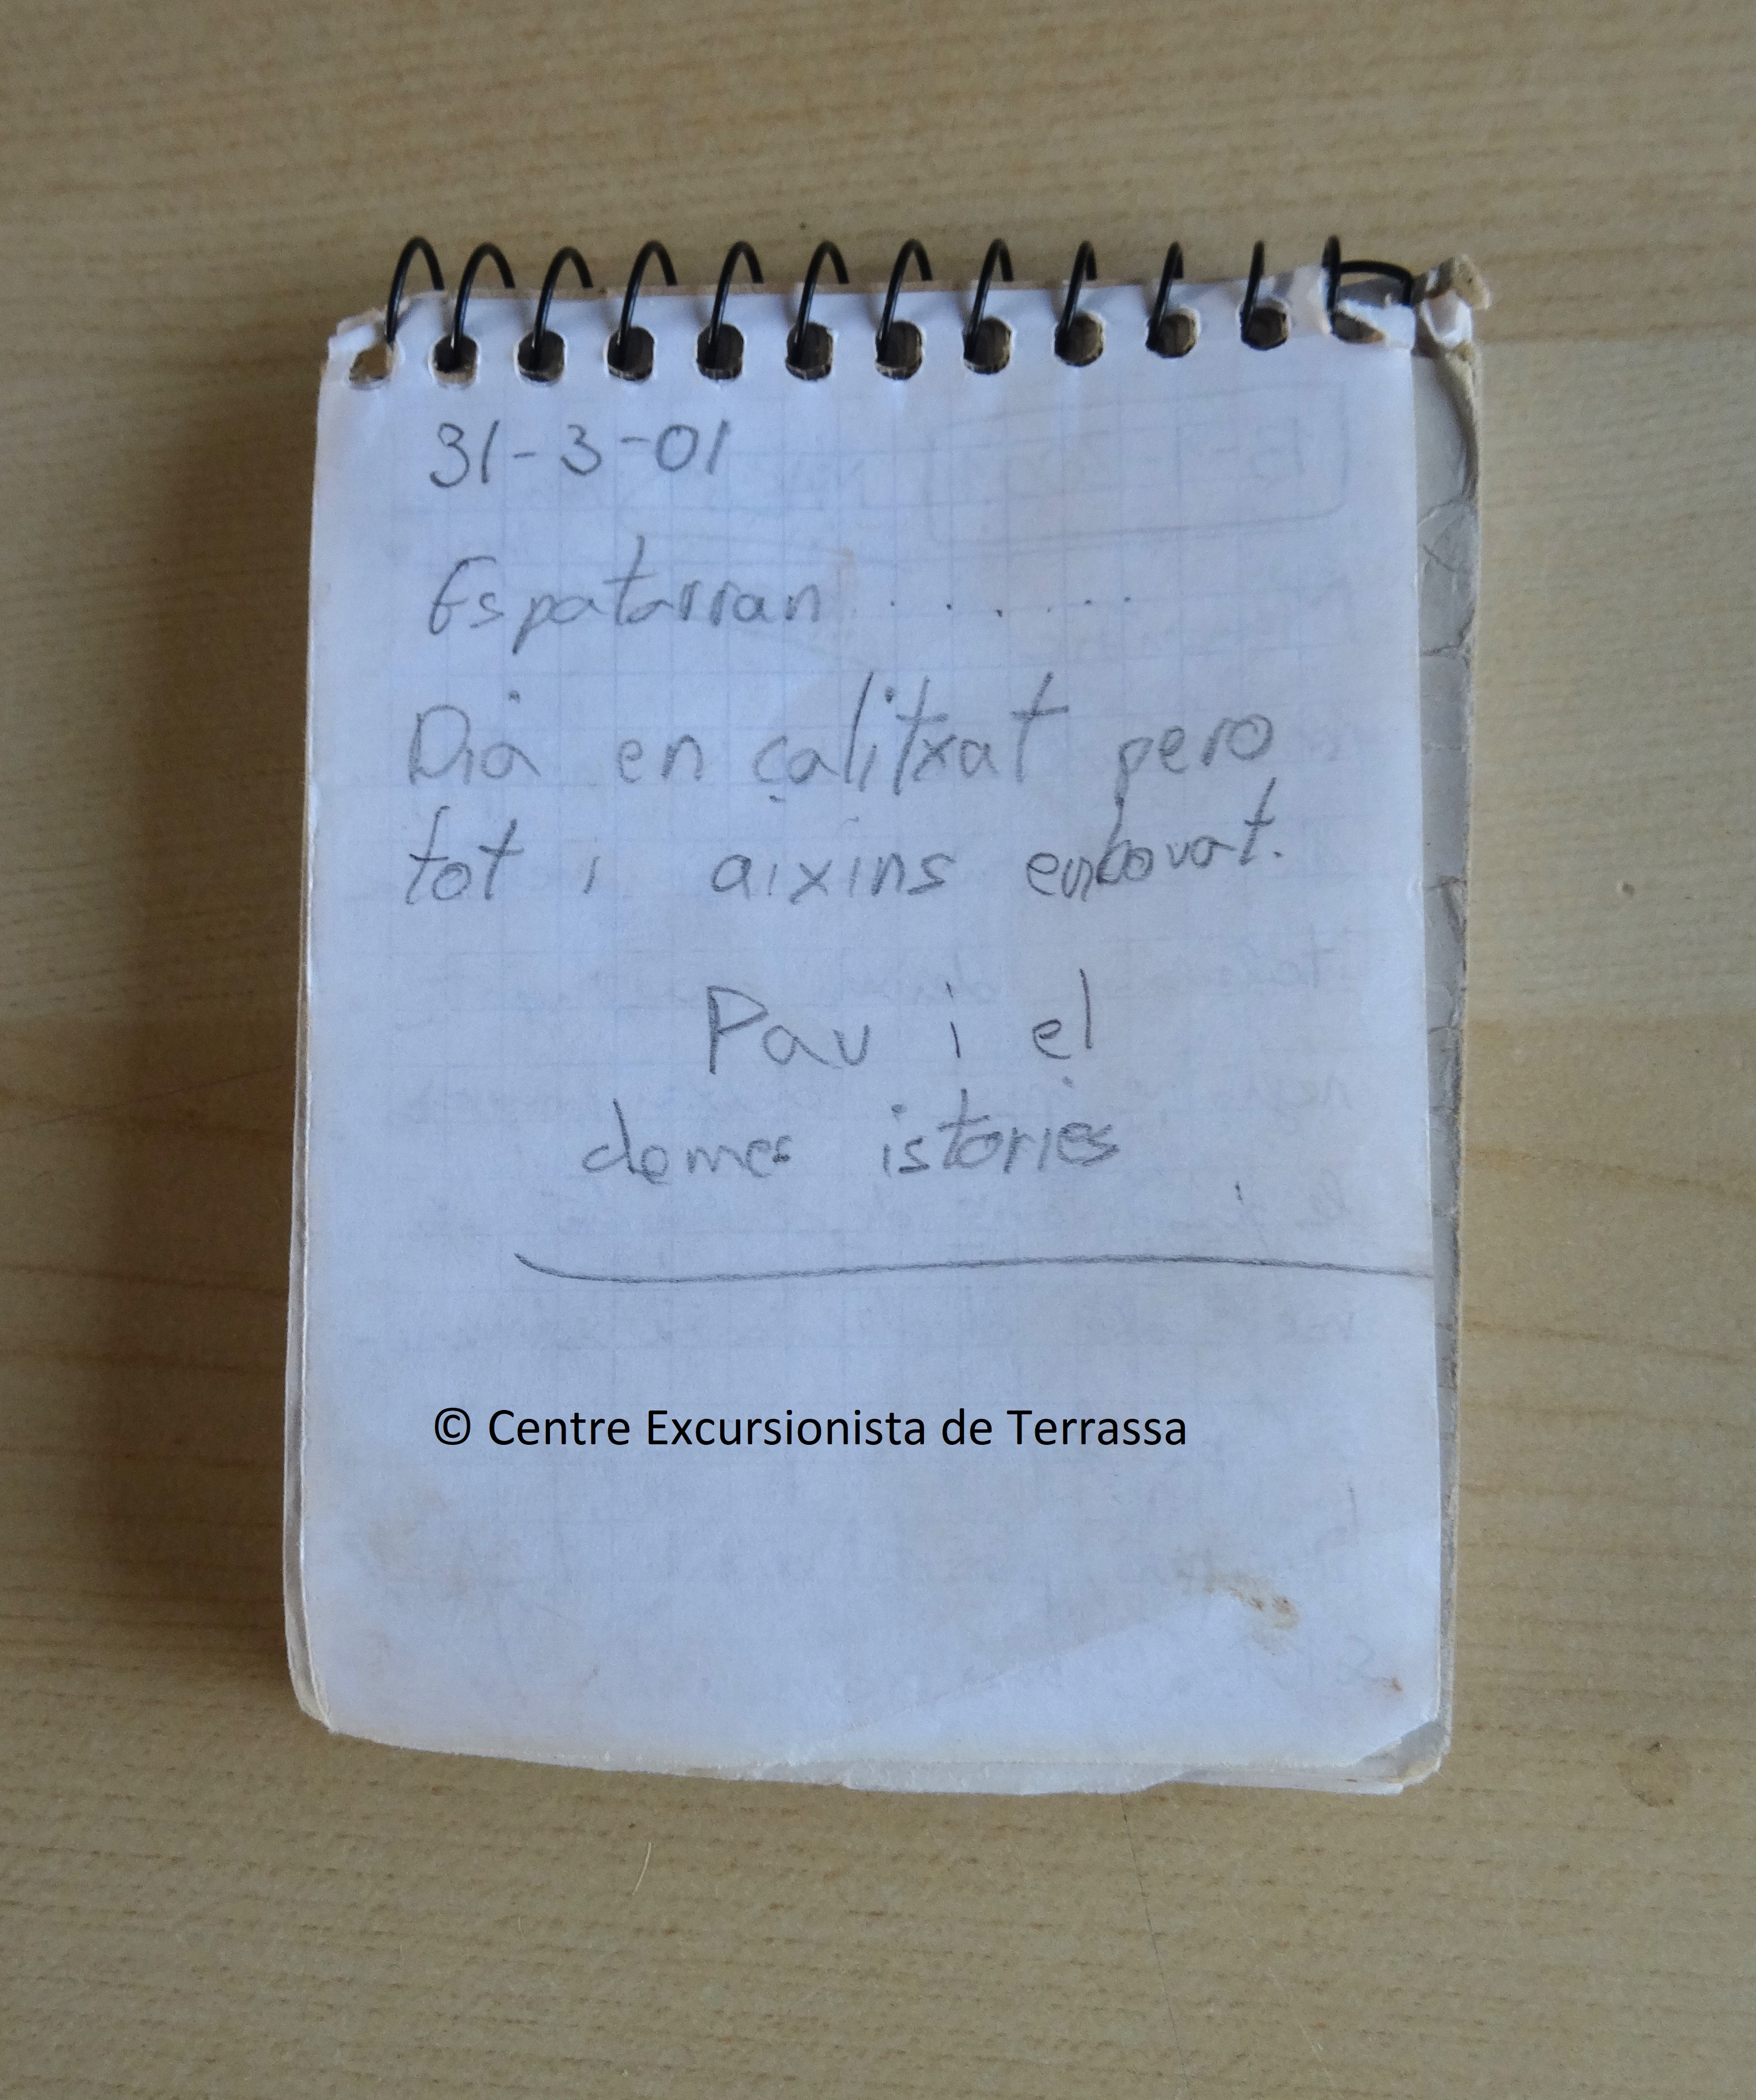 31-3-01
Espatarran . . . . . . .
Dia en calitxat pero
tot i aixins enbovat.
Pau i el
demes istories
© Centre Excursionista de Terrassa